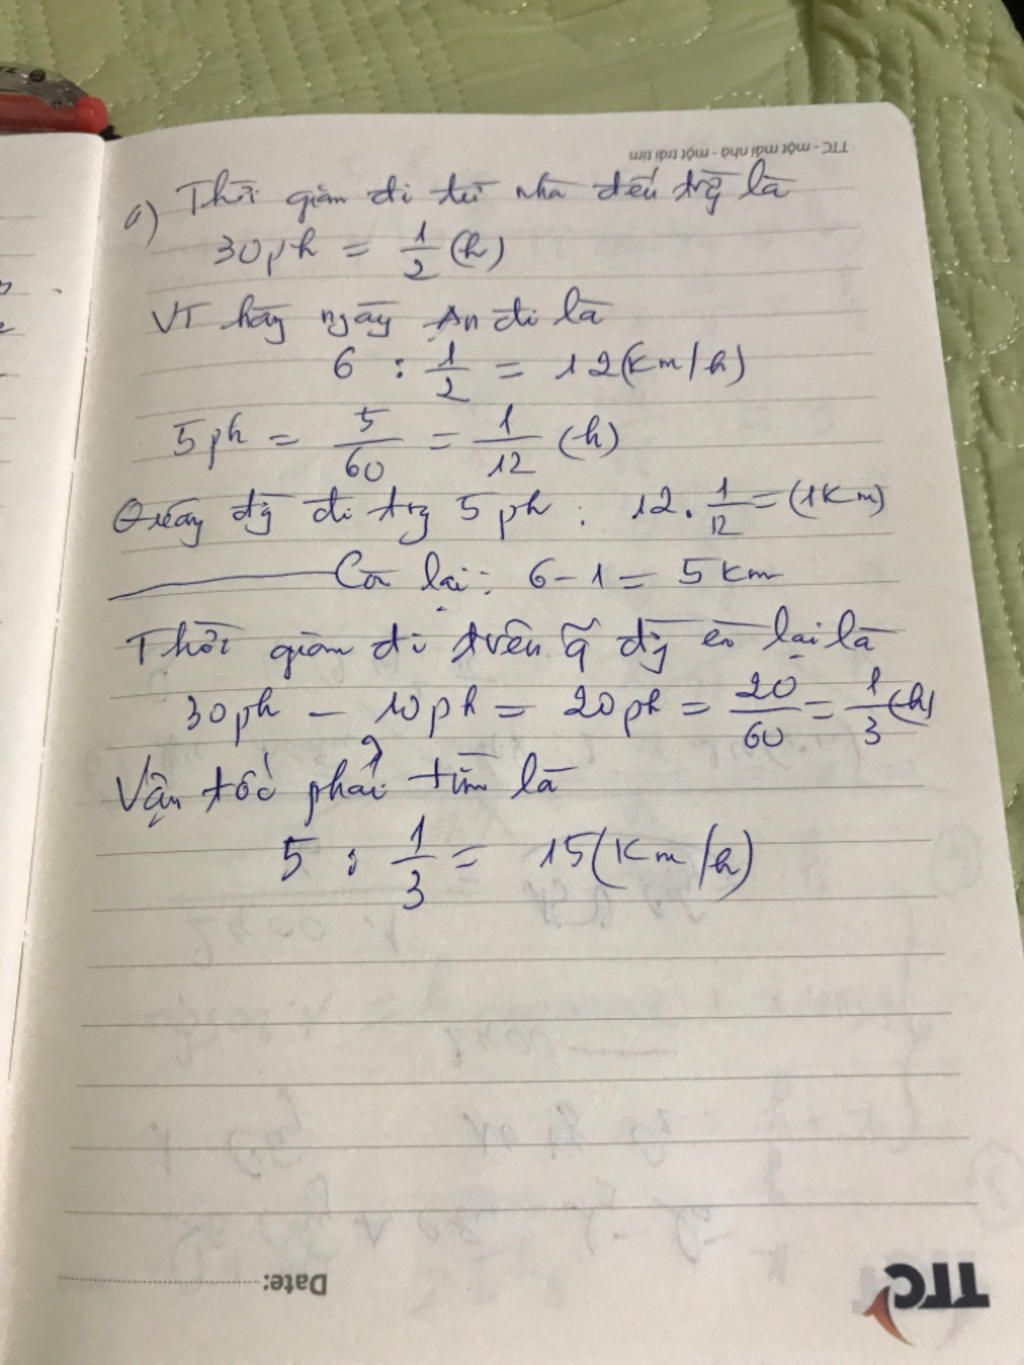 TTC - một mái nhà - một trái tim
a) Thời gian đi từ nhà đến trg là
30ph = 1/2 (h)
VT hàg ngày An đi là
6 : 1/2 = 12(km/h)
5ph = 5/60 = 1/12 (h)
Quãg đg đi trg 5 ph : 12 . 1/12 = (1Km)
Cò lại : 6 - 1 = 5 Km
Thời gian đi trên q̃ đg cò lại là
30ph - 10ph = 20ph = 20/60 = 1/3 (h)
Vận tốc phải tìm là
5 : 1/3 = 15(Km/h)
Date:
TTC